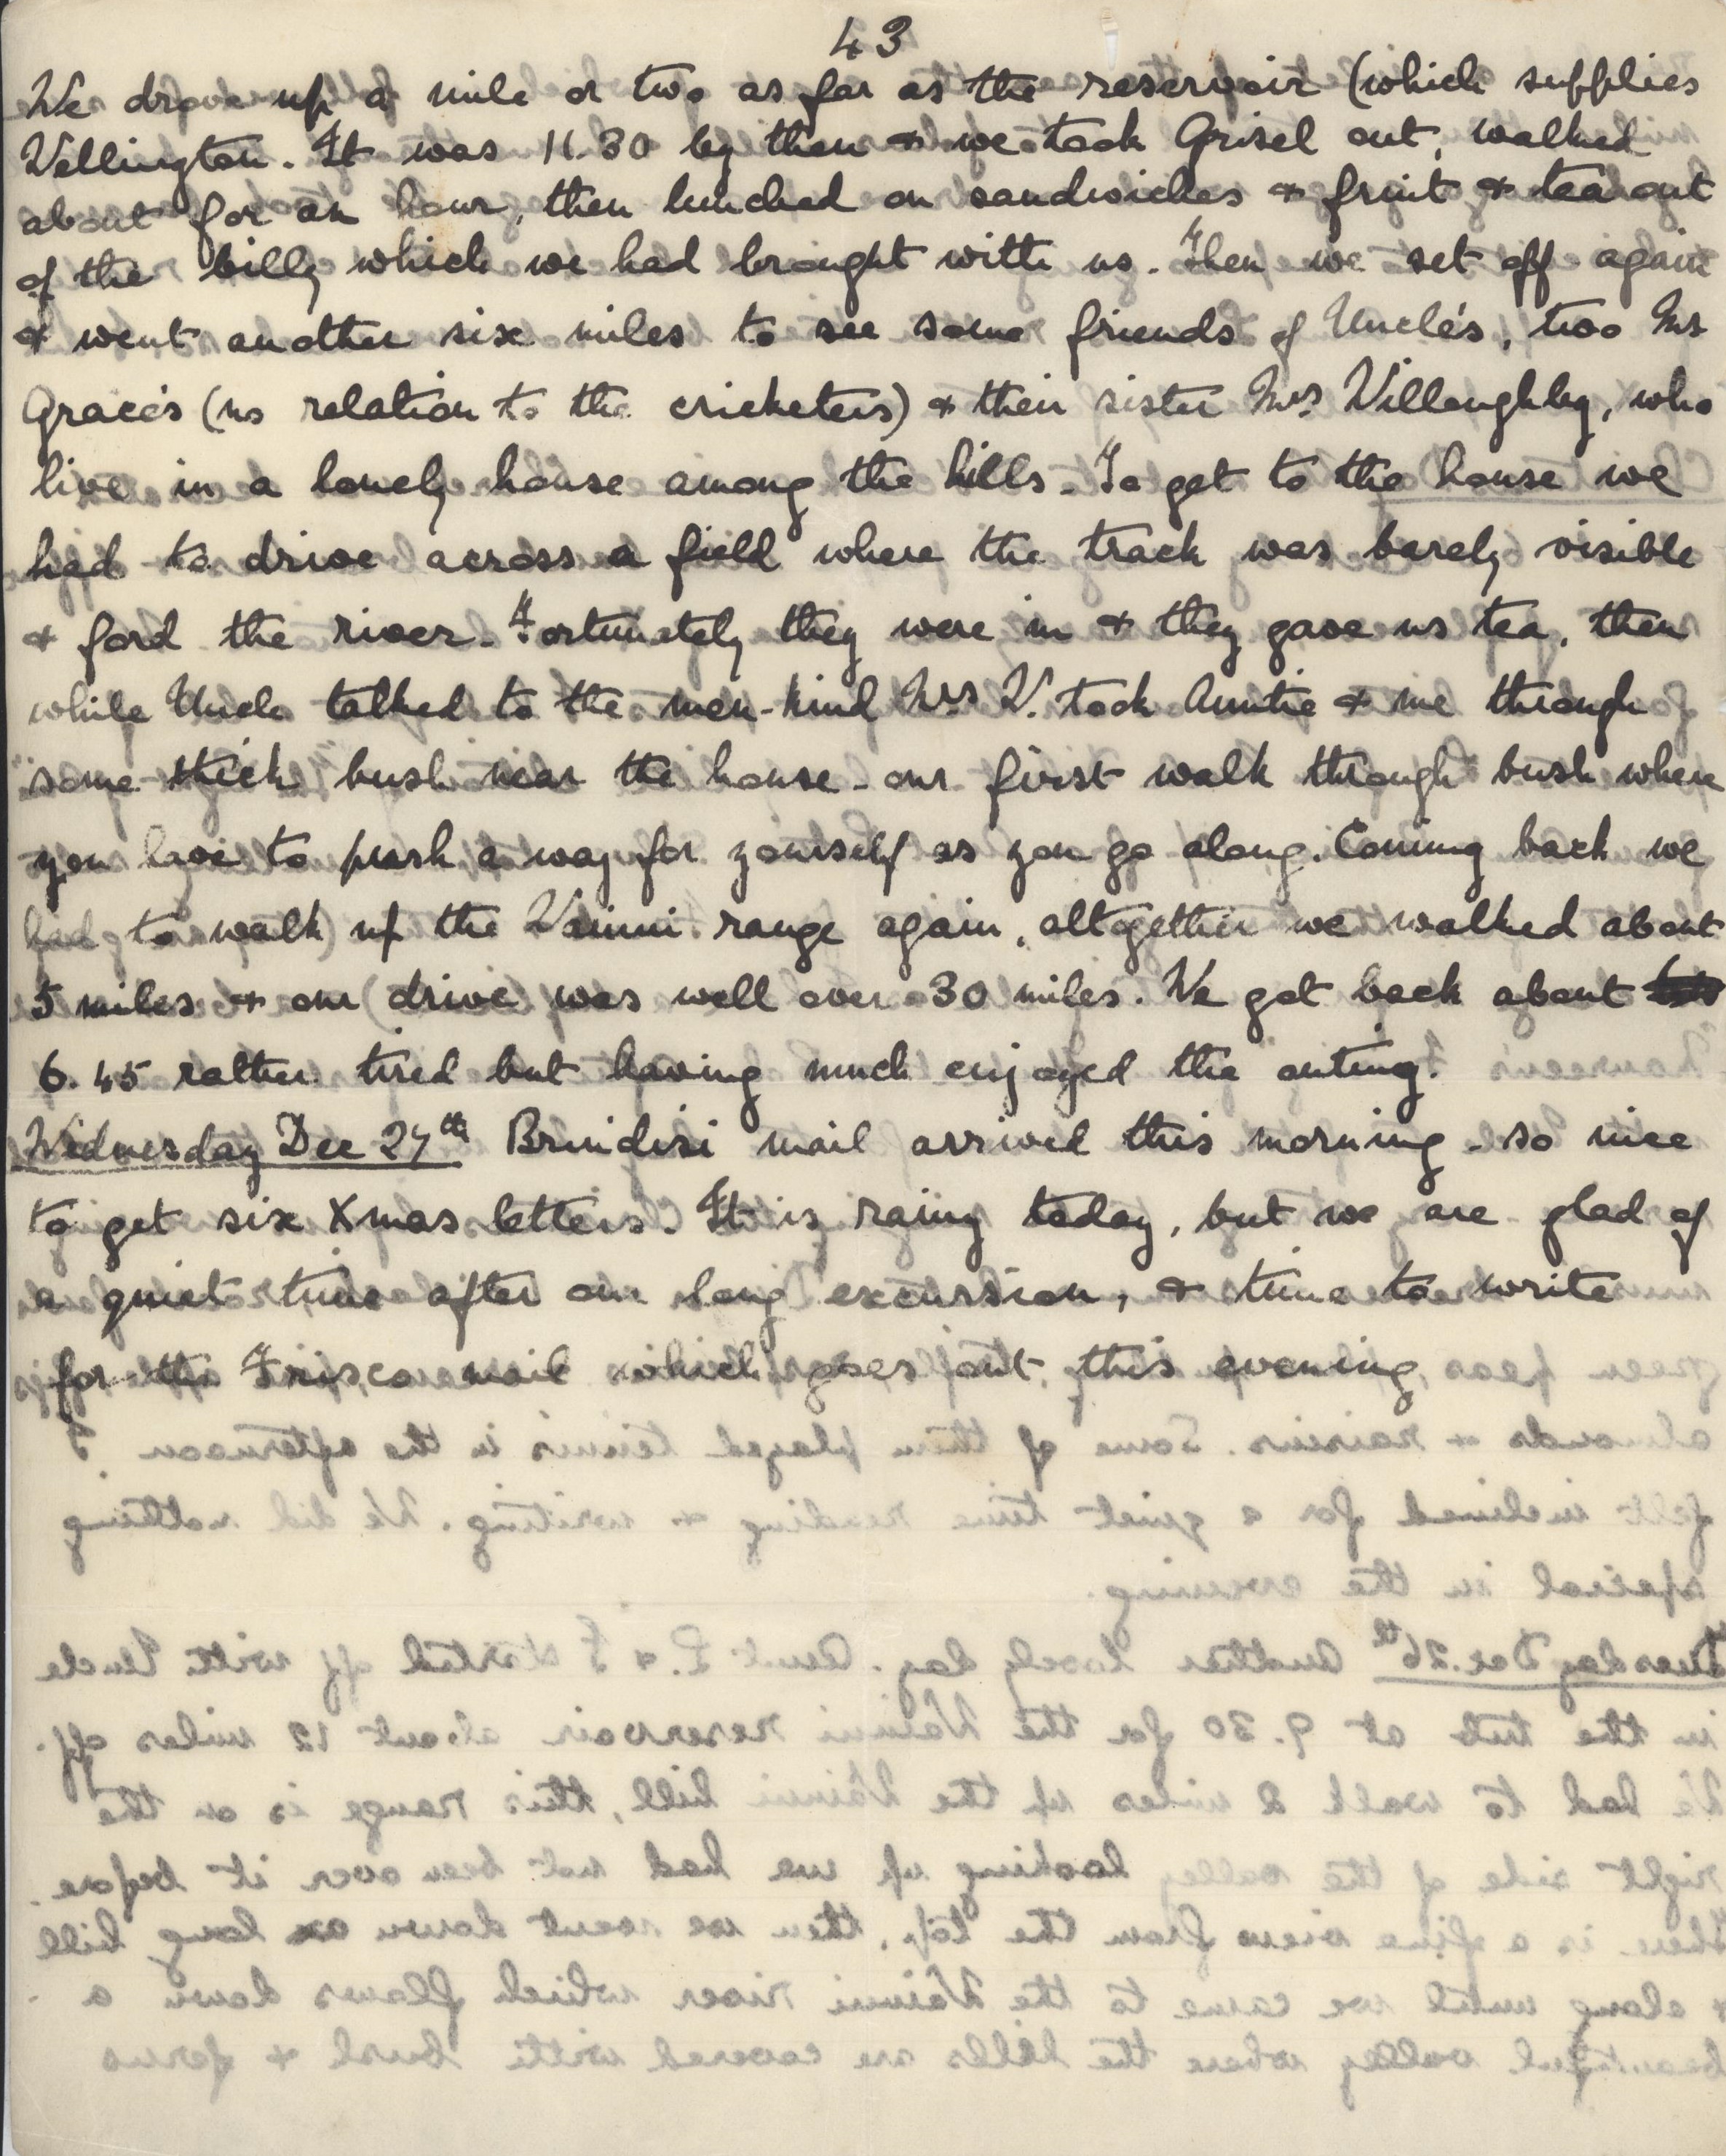 43
We drove up a mile or two as far as the reservoir (which supplies
Wellington. It was 11.30 by then & we took Grisel out, walked
about for an hour, then lunched on sandwiches & fruit & tea out
of the billy which we had brought with us. Then we set off again
& went another six miles to see some friends of Uncle's, two Mr
Grace's (no relation to the cricketers) & their sister Mrs Willoughby, who
live in a lonely house among the hills. To get to the house we
had to drive across a field where the track was barely visible
& ford the river. Fortunately they were in & they gave us tea, then
while Uncle talked to the men-kind Mrs W. took Auntie & me through
some "thick" bush near the house - our first walk through bush where
you have to push a way for yourself as you go along. Coming back we
had to walk up the Wainui range again, altogether we walked about
5 miles & our drive was well over 30 miles. We got back about
6.45 rather tired but having much enjoyed the outing.
Wednesday Dec 27th Brindisi mail arrived this morning - so nice
to get six Xmas letters. It is rainy today, but we are glad of
a quiet time after our long excursion, & time to write
for the Frisco mail which goes out this evening.